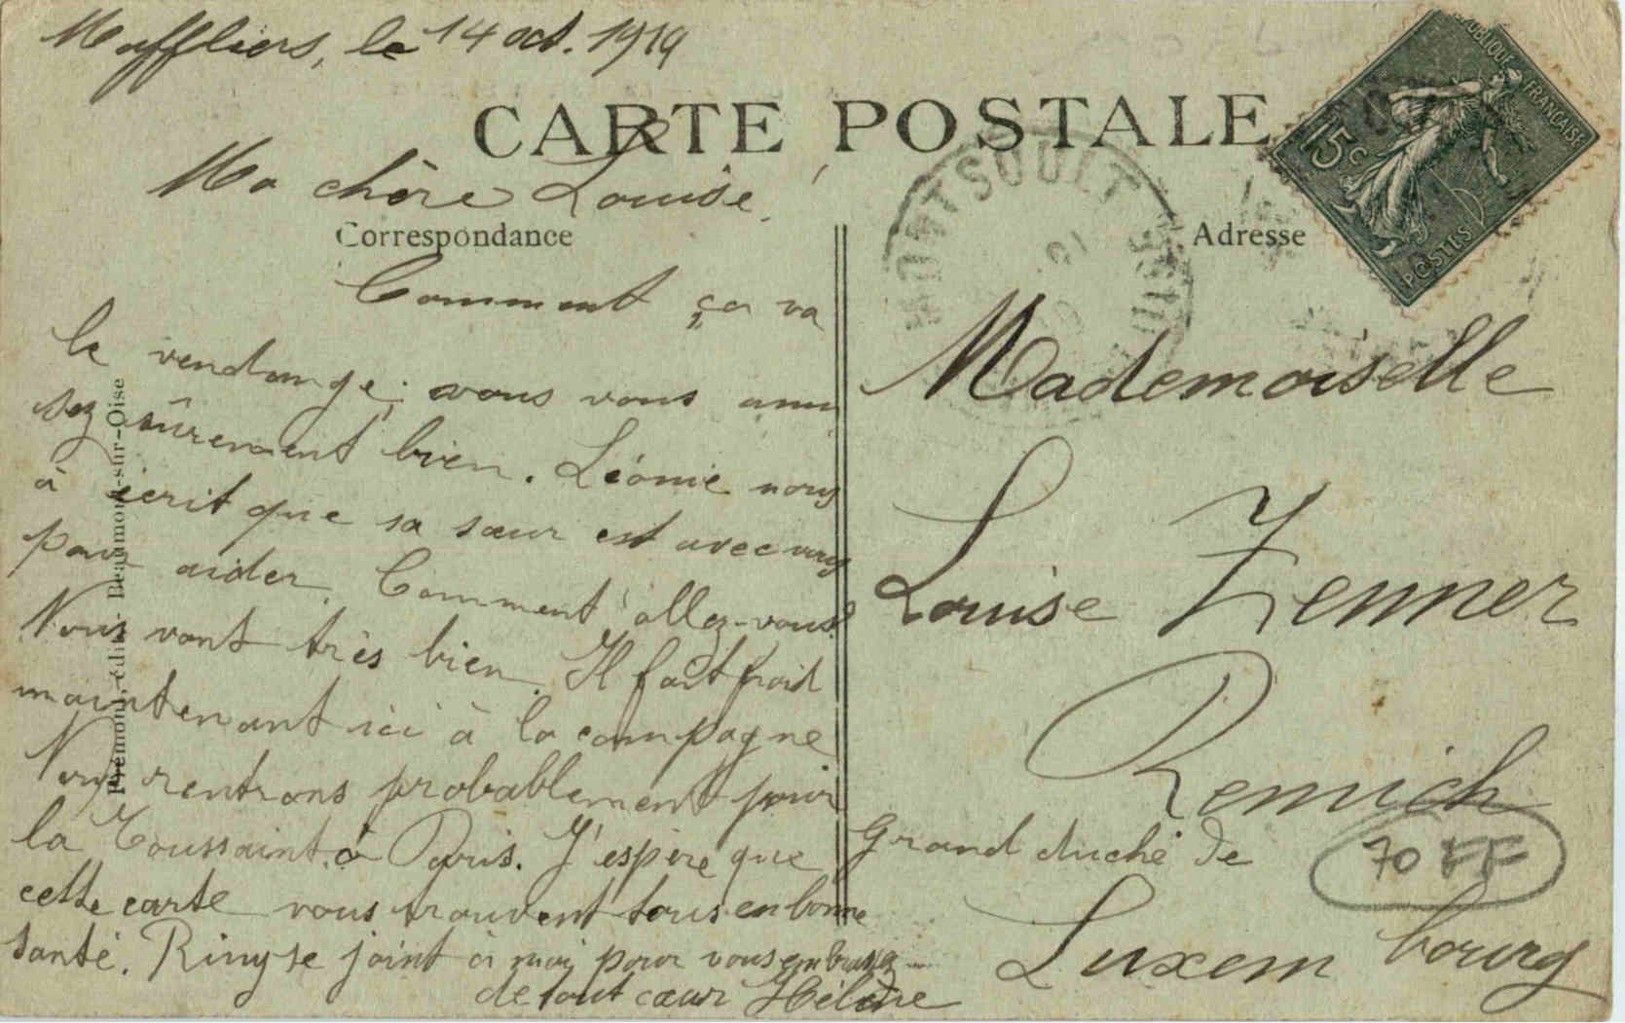 Maffliers, le 14 oct. 1919
CARTE POSTALE
RÉPUBLIQUE FRANÇAISE
15c
POSTES
MONTSOULT
Ma chère Louise,
Correspondance
Adresse
Comment ça va
la vendange; vous vous amu
sez sûrement bien. Léonie nous
à écrit que sa sœur est avec vous
pour aider. Comment allez-vous?
Nous vont très bien. Il fait froid
maintenant ici à la campagne
Nous rentrons probablement pour
la Toussaint à Paris. J'espère que
cette carte vous trouvent tous en bonne
santé. Riny se joint à moi pour vous embrasser
de tout cœur Hélène
Mademoiselle
Louise Zenner
Remich
Grand duché de
Luxembourg
70 FF
Frémont, édit. - Beaumont-sur-Oise